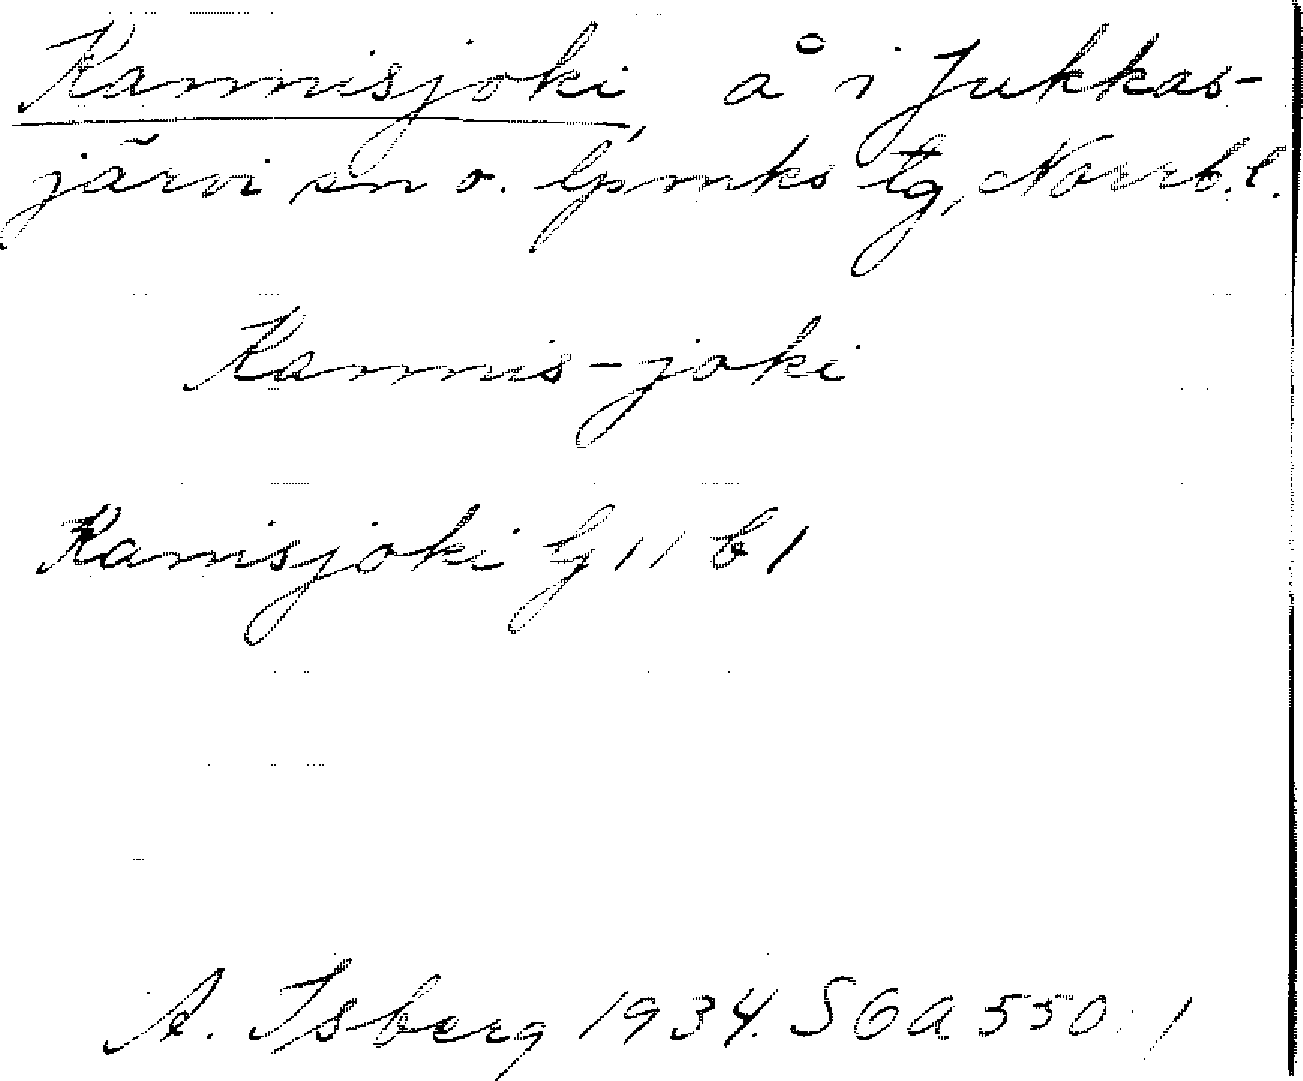 Kannisjoki, å i Jukkas-
järvi sn o. lpmks tg, Norrb. l.
Kannis-joki
Kanisjoki Gj 11 b 1
A. Isberg 1934. SOA 550:1